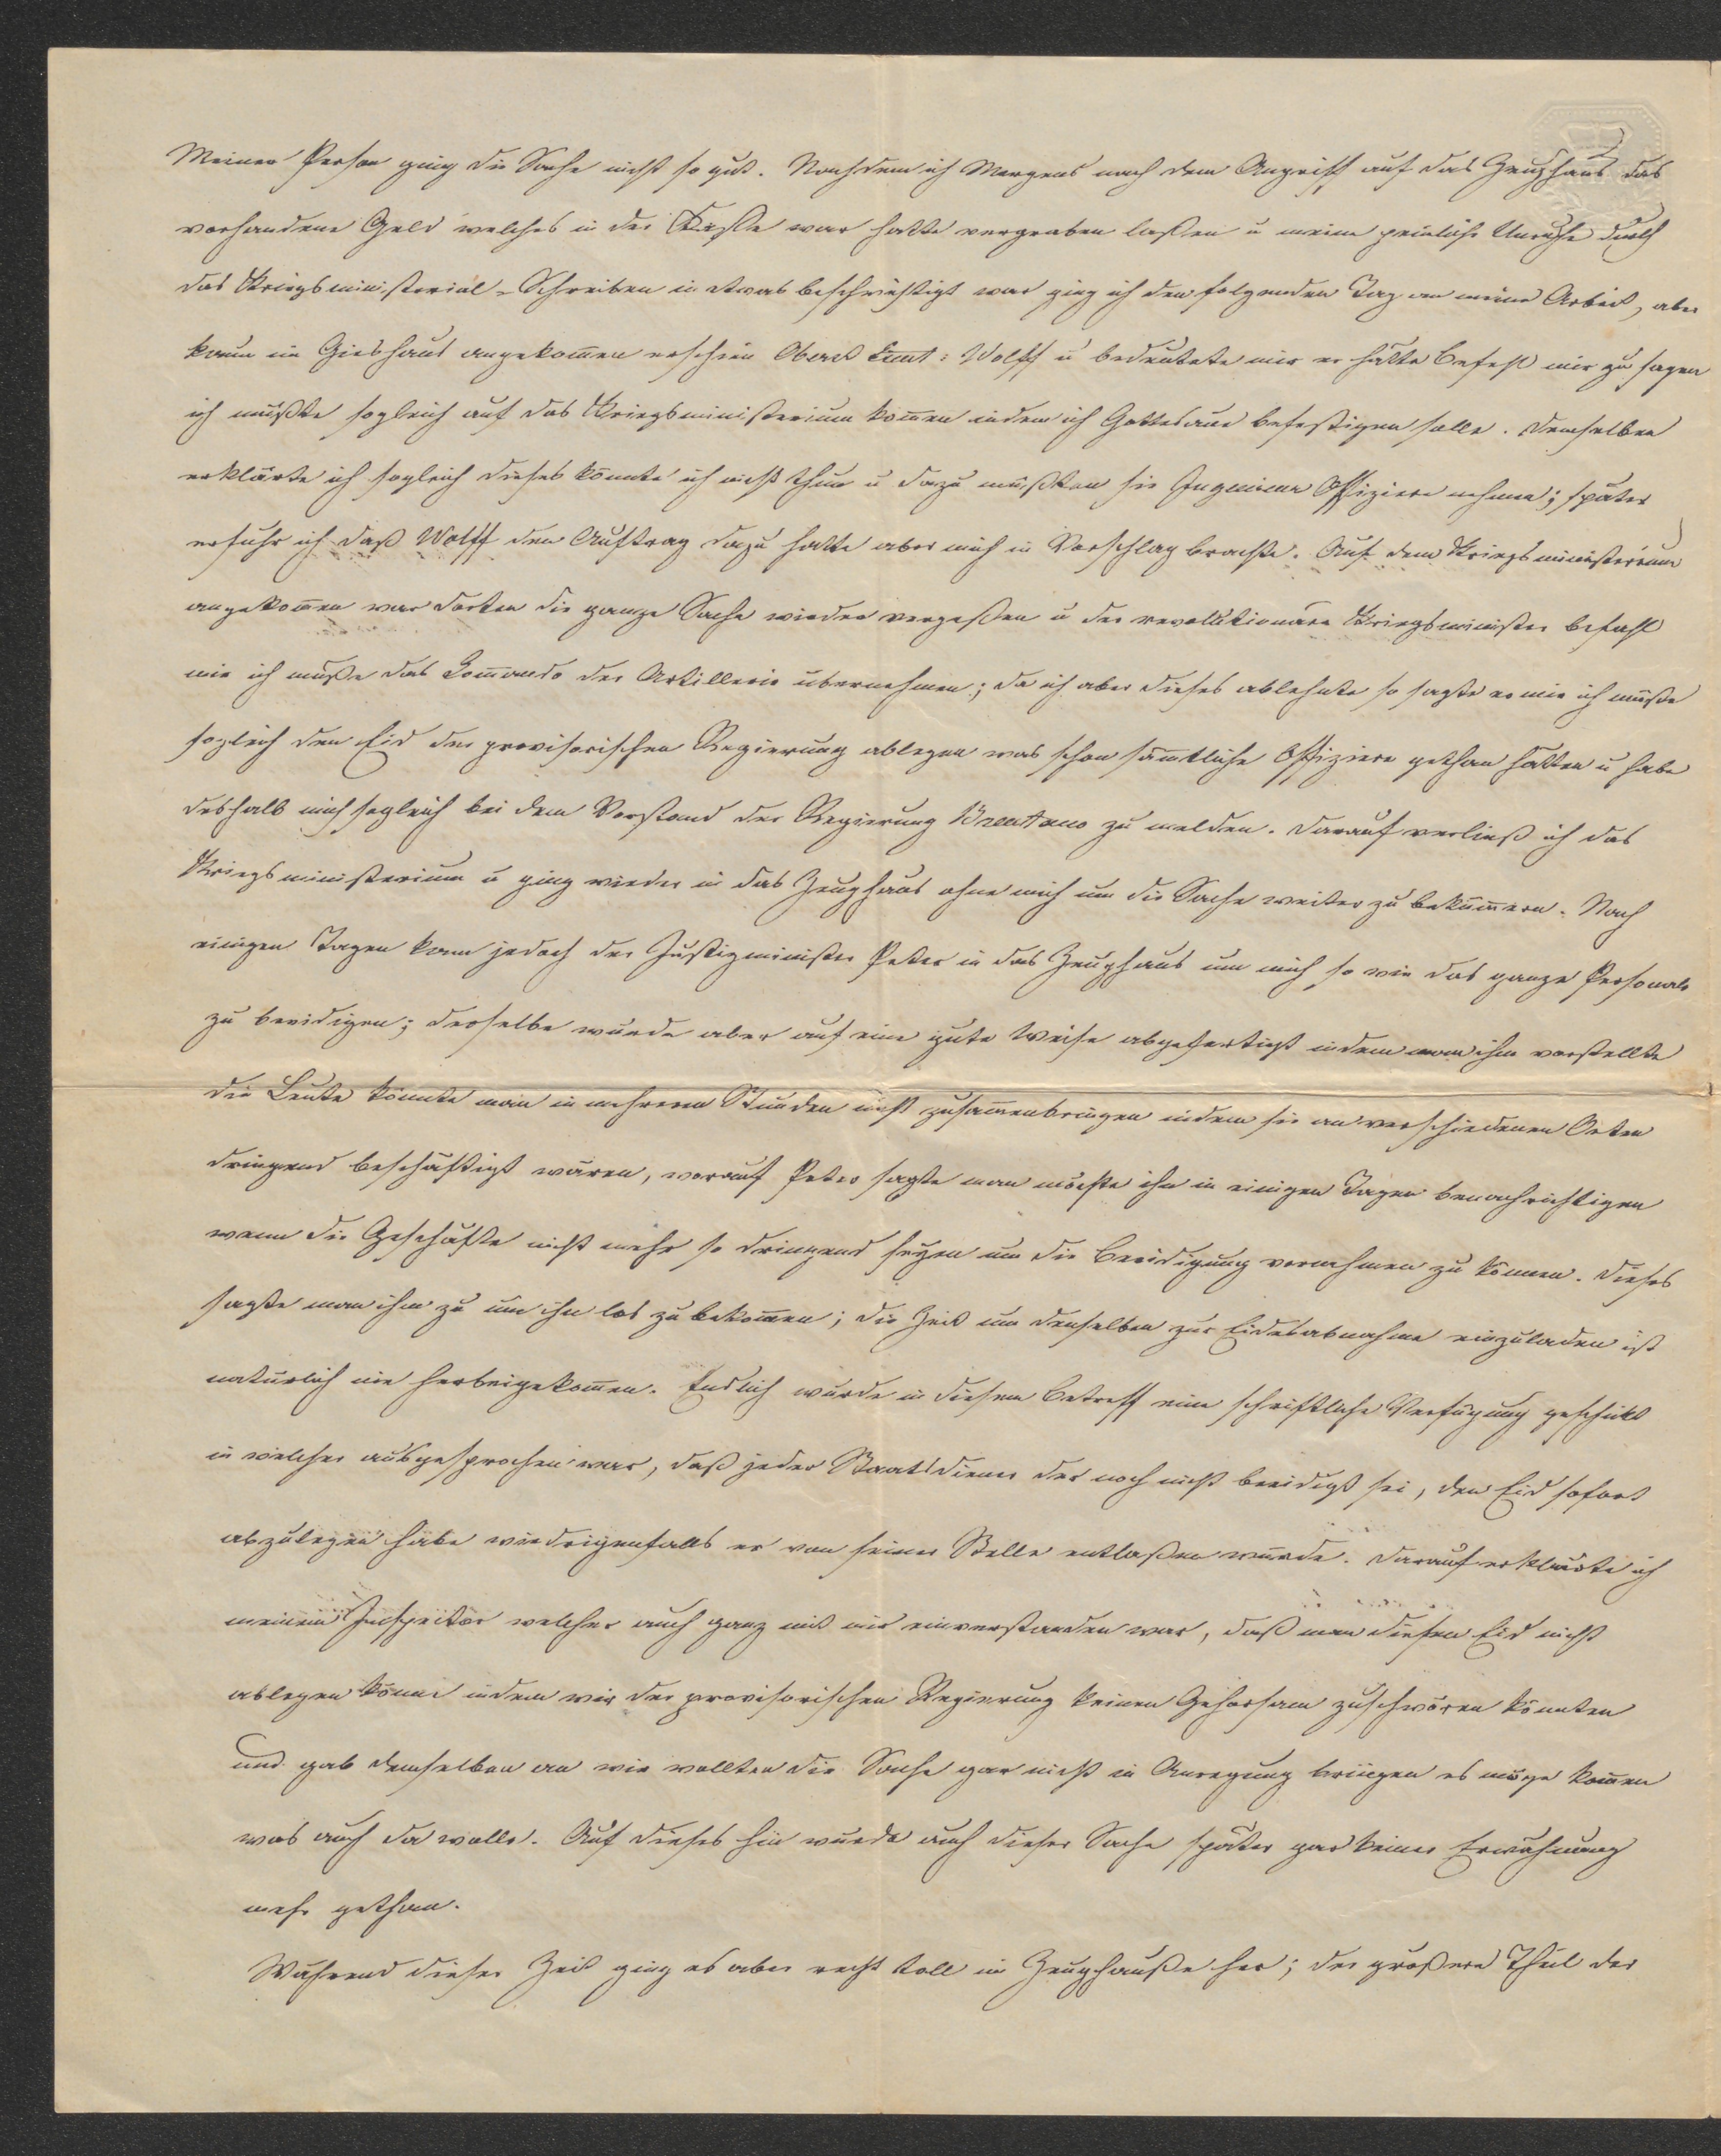 Meiner Person ging die Sache nicht so gut. Nachdem ich Morgens nach dem Angriff auf das Zeughaus das
vorhandene Geld welches in der Kaße war hatte vergraben laßen u meine peinliche Unruhe durch
das Kriegsministerial-Schreiben in etwas beschwichtigt war ging ich den folgenden Tag an meine Arbeit, aber
kaum im Gieshaus angekom̅en erschien Oberst Lieut: Wolff u bedeutete mir er hätte Befehl mir zu sagen
ich müßte sogleich auf das Kriegsministerium kom̅en indem ich Gottesaue befestigen solle. Demselben
erklärte ich sogleich dieses könnte ich nicht thun u dazu müßten sie Ingenieur Offiziere nehmen; später
erfuhr ich daß Wolff den Auftrag dazu hatte aber mich in Vorschlag brachte. Auf dem Kriegsministerium
angekom̅en war dorten die ganze Sache wieder vergeßen u der revolutionäre Kriegsminister befahl
mir ich müße das Com̅ando der Artillerie übernehmen; da ich aber dieses ablehnte so sagte er mir ich müßte
sogleich den Eid der provisorischen Regierung ablegen was schon säm̅tliche Offiziere gethan hätten u habe
deshalb mich sogleich bei dem Vorstand der Regierung Brentano zu melden. Darauf verließ ich das
Kriegsministerium u ging wieder in das Zeughaus ohne mich um die Sache weiter zu beküm̅ern. Nach
einigen Tagen kam jedoch der Justizminister Peter in das Zeughaus um mich so wie das ganze Personale
zu beeidigen; derselbe wurde aber auf eine gute Weise abgefertigt indem man ihm vorstellte
die Leute könnte man in mehreren Stunden nicht zusam̅enbringen indem sie an verschiedenen Orten
dringend beschäftigt wären, worauf Peter sagte man möchte ihn in einigen Tagen benachrichtigen
wenn die Geschäfte nicht mehr so dringend seyen um die Beeidigung vornehmen zu können. Dieses
sagte man ihm zu um ihn los zu bekom̅en; die Zeit um denselben zur Eidesabnahme einzuladen ist
natürlich nie herbeigekom̅en. Endlich wurde in diesem Betreff eine schriftliche Verfügung geschickt
in welcher ausgesprochen war, daß jeder Staatsdiener der noch nicht beeidigt sei, den Eid sofort
abzulegen habe wiedrigenfalls er von seiner Stelle entlaßen würde. Darauf erklärte ich
meinem Inspektor welcher auch ganz mit mir einverstanden war, daß man diesen Eid nicht
ablegen könne indem wir der provisorischen Regierung keinen Gehorsam zuschwören könnten
und gab demselben an wir wollten die Sache gar nicht in Anregung bringen es möge kom̅en
was auch da wolle. Auf dieses hin wurde auch dieser Sache später gar keiner Erwähnung
mehr gethan.
Während dieser Zeit ging es aber recht toll im Zeughauße her; der größere Theil der